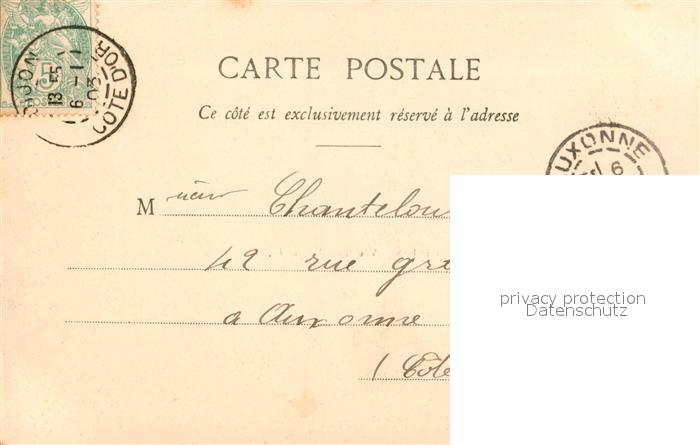 5
DIJON
13 E
6 -11
03
COTE D'OR
CARTE POSTALE
Ce côté est exclusivement réservé à l'adresse
UXONNE
6
M
42 rue gre
a Auxonne
(Côte
privacy protection
Datenschutz